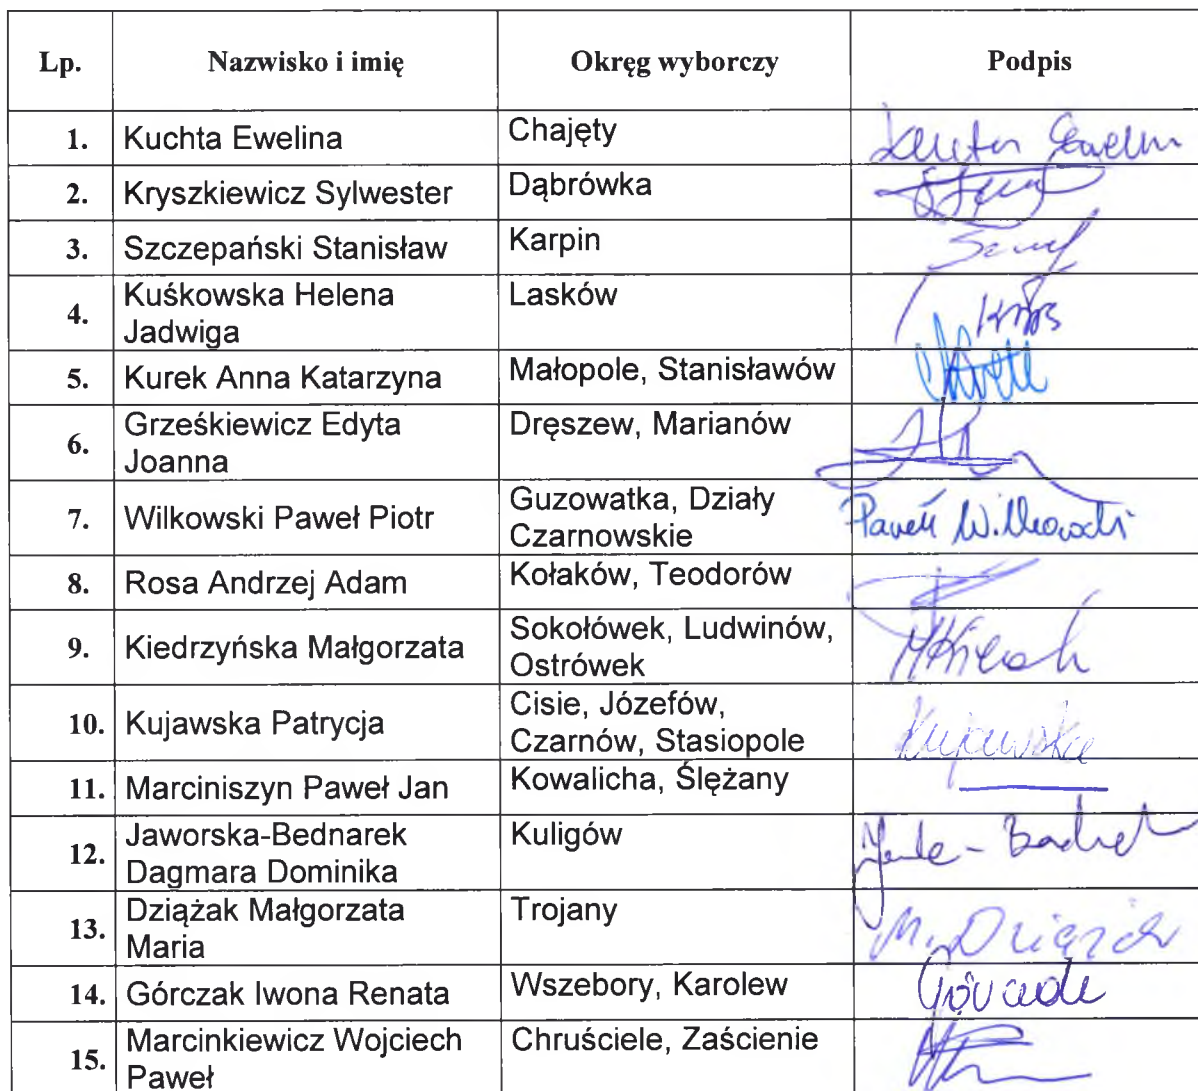 Lp. Nazwisko i imię Okręg wyborczy Podpis
1. Kuchta Ewelina Chajęty
2. Kryszkiewicz Sylwester Dąbrówka
3. Szczepański Stanisław Karpin
4. Kuśkowska Helena Lasków
Jadwiga
5. Kurek Anna Katarzyna Małopole, Stanisławów
6. Grześkiewicz Edyta Dręszew, Marianów
Joanna
7. Wilkowski Paweł Piotr Guzowatka, Działy Paweł Wilkowski
Czarnowskie
8. Rosa Andrzej Adam Kołaków, Teodorów
9. Kiedrzyńska Małgorzata Sokołówek, Ludwinów,
Ostrówek
10. Kujawska Patrycja Cisie, Józefów, Kujawska
Czarnów, Stasiopole
11. Marciniszyn Paweł Jan Kowalicha, Ślężany
12. Jaworska-Bednarek Kuligów
Dagmara Dominika
13. Dziążak Małgorzata Trojany M. Dziążak
Maria
14. Górczak Iwona Renata Wszebory, Karolew
15. Marcinkiewicz Wojciech Chruściele, Zaścienie
Paweł